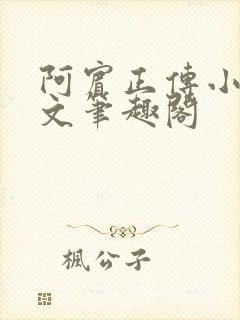 阿賓正傳小
文筆趣閣
楓公子